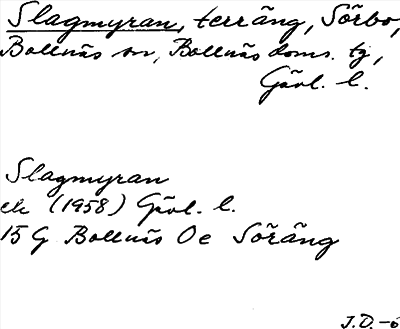 Slagmyran, terräng, Sörbo,
Bollnäs sn, Bollnäs doms. tg,
Gävl. l.
Slagmyran
ek (1958) Gävl. l.
15 G Bollnäs Oe Söräng
J.D.-6